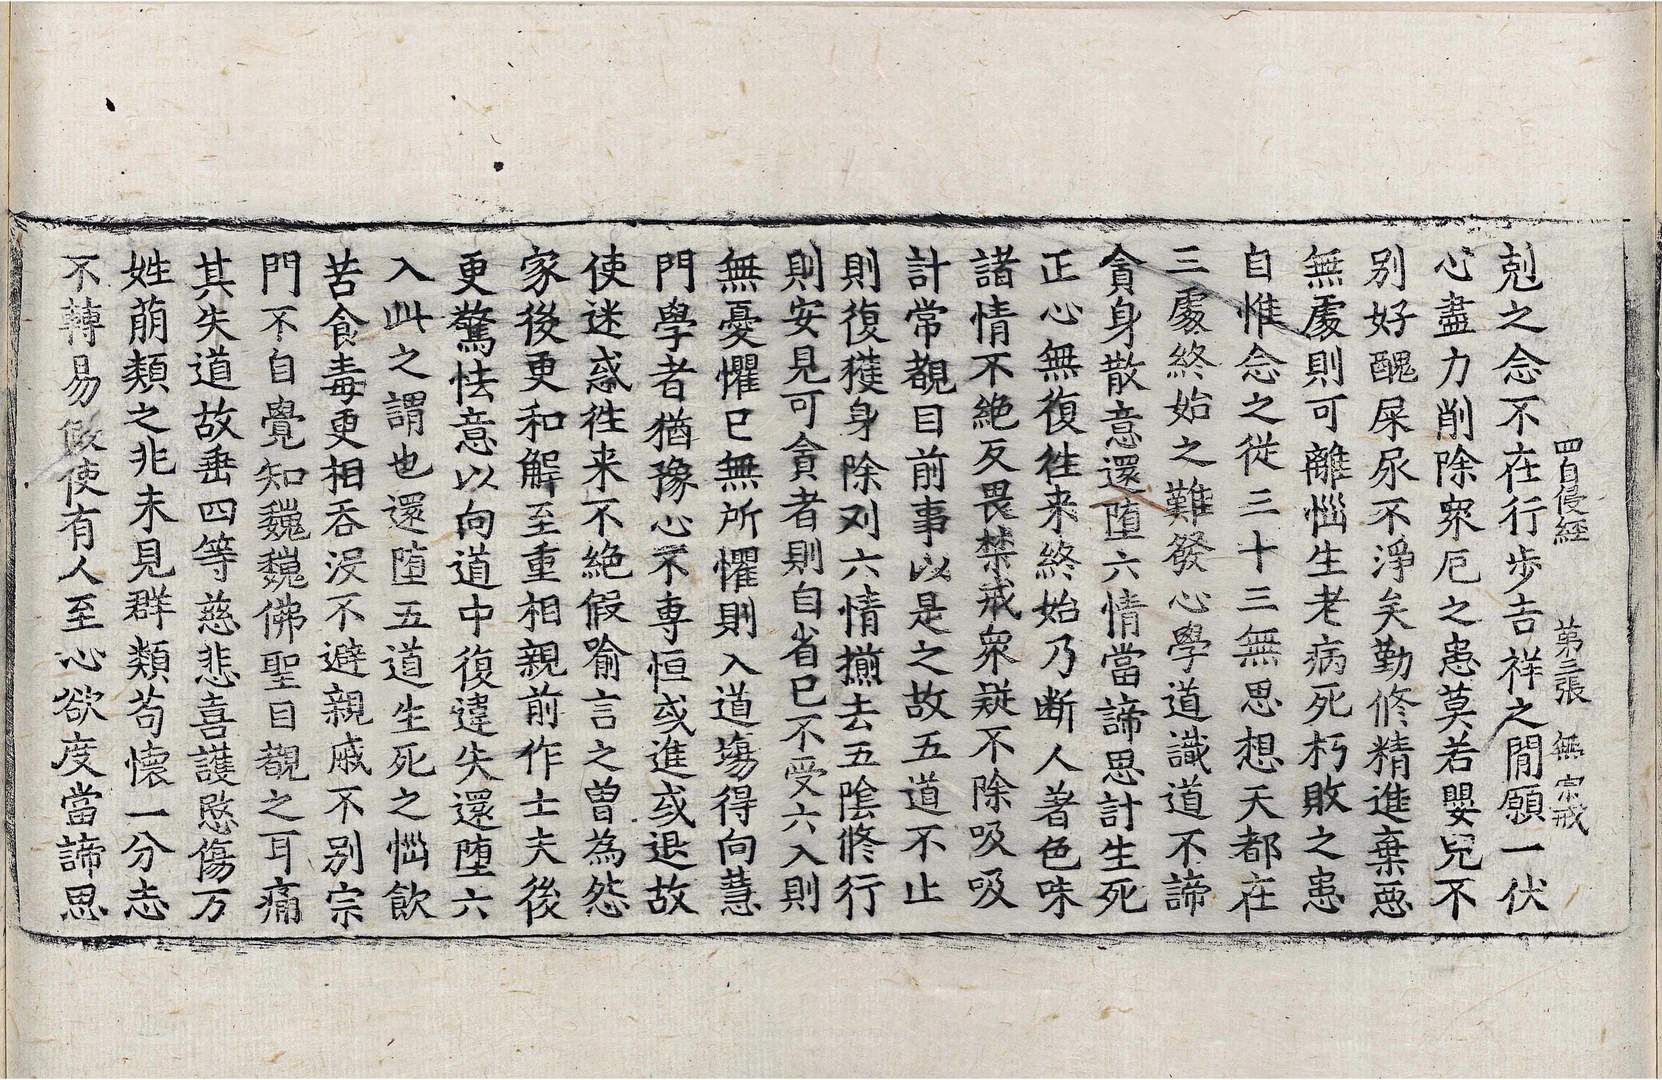 四自侵經 第三張 無宗戒
剋之念不在行步吉祥之閒願一伏
心盡力削除衆厄之患莫若嬰兒不
别好醜屎尿不淨矣勤修精進棄惡
無處則可離惱生老病死朽敗之患
自惟念之從三十三無思想天都在
三處終始之難發心學道識道不諦
貪身散意還墮六情當諦思計生死
正心無復徃来終始乃断人著色味
諸情不絶反畏禁戒衆疑不除吸吸
計常覩目前事以是之故五道不止
則復獲身除刈六情揃去五隂修行
則安見可貪者則自省已不受六入則
無憂懼已無所懼則入道塲得向慧
門學者猶豫心不専恒或進或退故
使迷惑徃来不絶假喻言之曽為怨
家後更和解至重相親前作士夫後
更驚怯意以向道中復違失還墮六
入此之謂也還墮五道生死之惱飲
苦食毒更相吞浸不避親戚不别宗
門不自覺知巍巍佛聖目覩之耳痛
其失道故垂四等慈悲喜護愍傷万
姓萠類之非未見群類茍懐一分志
不轉易假使有人至心欲度當諦思